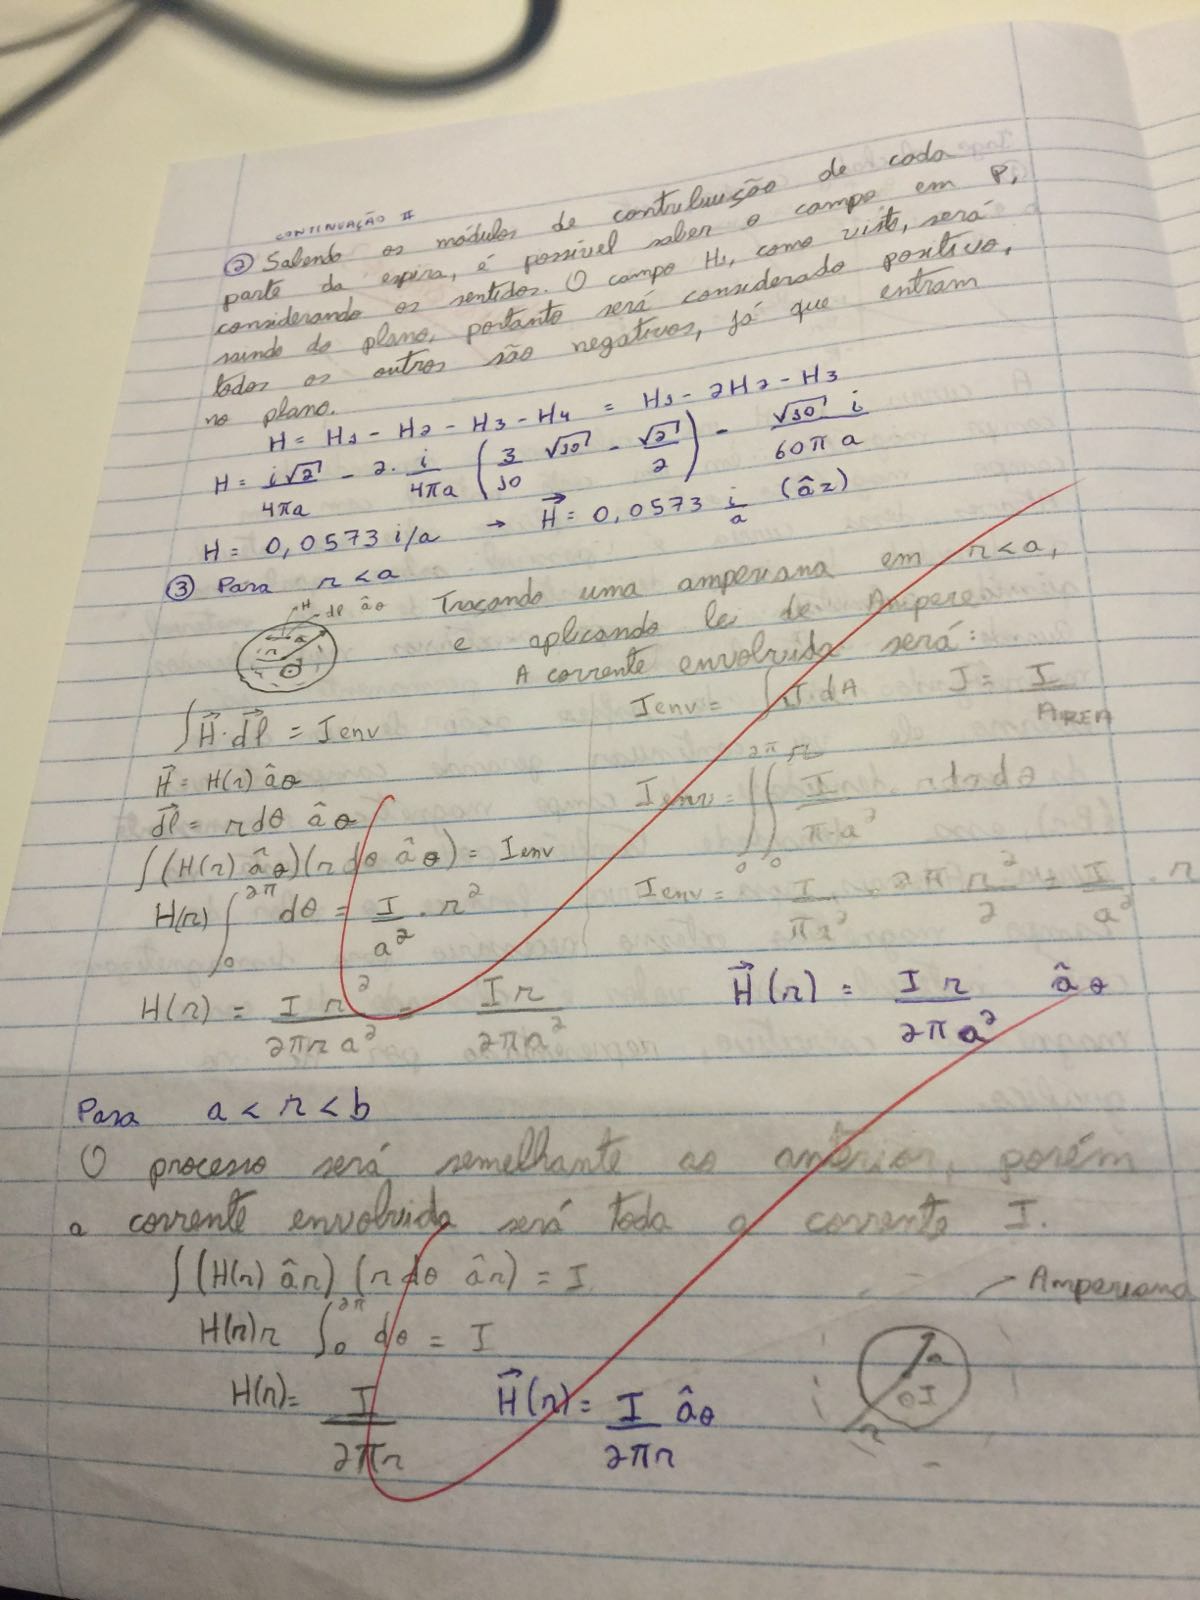 CONTINUAÇÃO II
② Sabendo os módulos de contribuição de cada
parte da espira, é possível saber o campo em P,
considerando os sentidos. O campo H1, como visto, será
saindo do plano, portanto será considerado positivo,
todos os outros são negativos, já que entram
no plano.
H = H1 - H2 - H3 - H4 = H1 - 2H2 - H3
H = i√2/4πa - 2· i/4πa (3/10 √10 - √2/2) - √10 i/60πa
H = 0,0573 i/a → H⃗ = 0,0573 i/a (âz)
③ Para r < a
H
dl âθ
a
r
I
Traçando uma amperiana em r < a,
e aplicando lei de Ampere
A corrente envolvida será:
∫H⃗·dl⃗ = Ienv
H⃗ = H(r) âθ
dl⃗ = r dθ âθ
∫(H(r) âθ)(r dθ âθ) = Ienv
H(r) ∫₀^2π dθ = I/a² · r²
H(r) = I r²/2πr a² = I r/2πa²
Ienv = ∫J·dA J = I/AREA
Ienv = ∫₀^2π ∫₀^r I/π·a² · r dr dθ
Ienv = I/πa² · 2π r²/2 = I/a² · r
H⃗(r) = I r/2πa² âθ
Para a < r < b
O processo será semelhante ao anterior, porém
a corrente envolvida será toda a corrente I.
∫(H(r) âr)(r dθ âr) = I
H(r) r ∫₀^2π dθ = I
H(r) = I/2πr H⃗(r) = I/2πr âθ
Amperiana
a
I
r